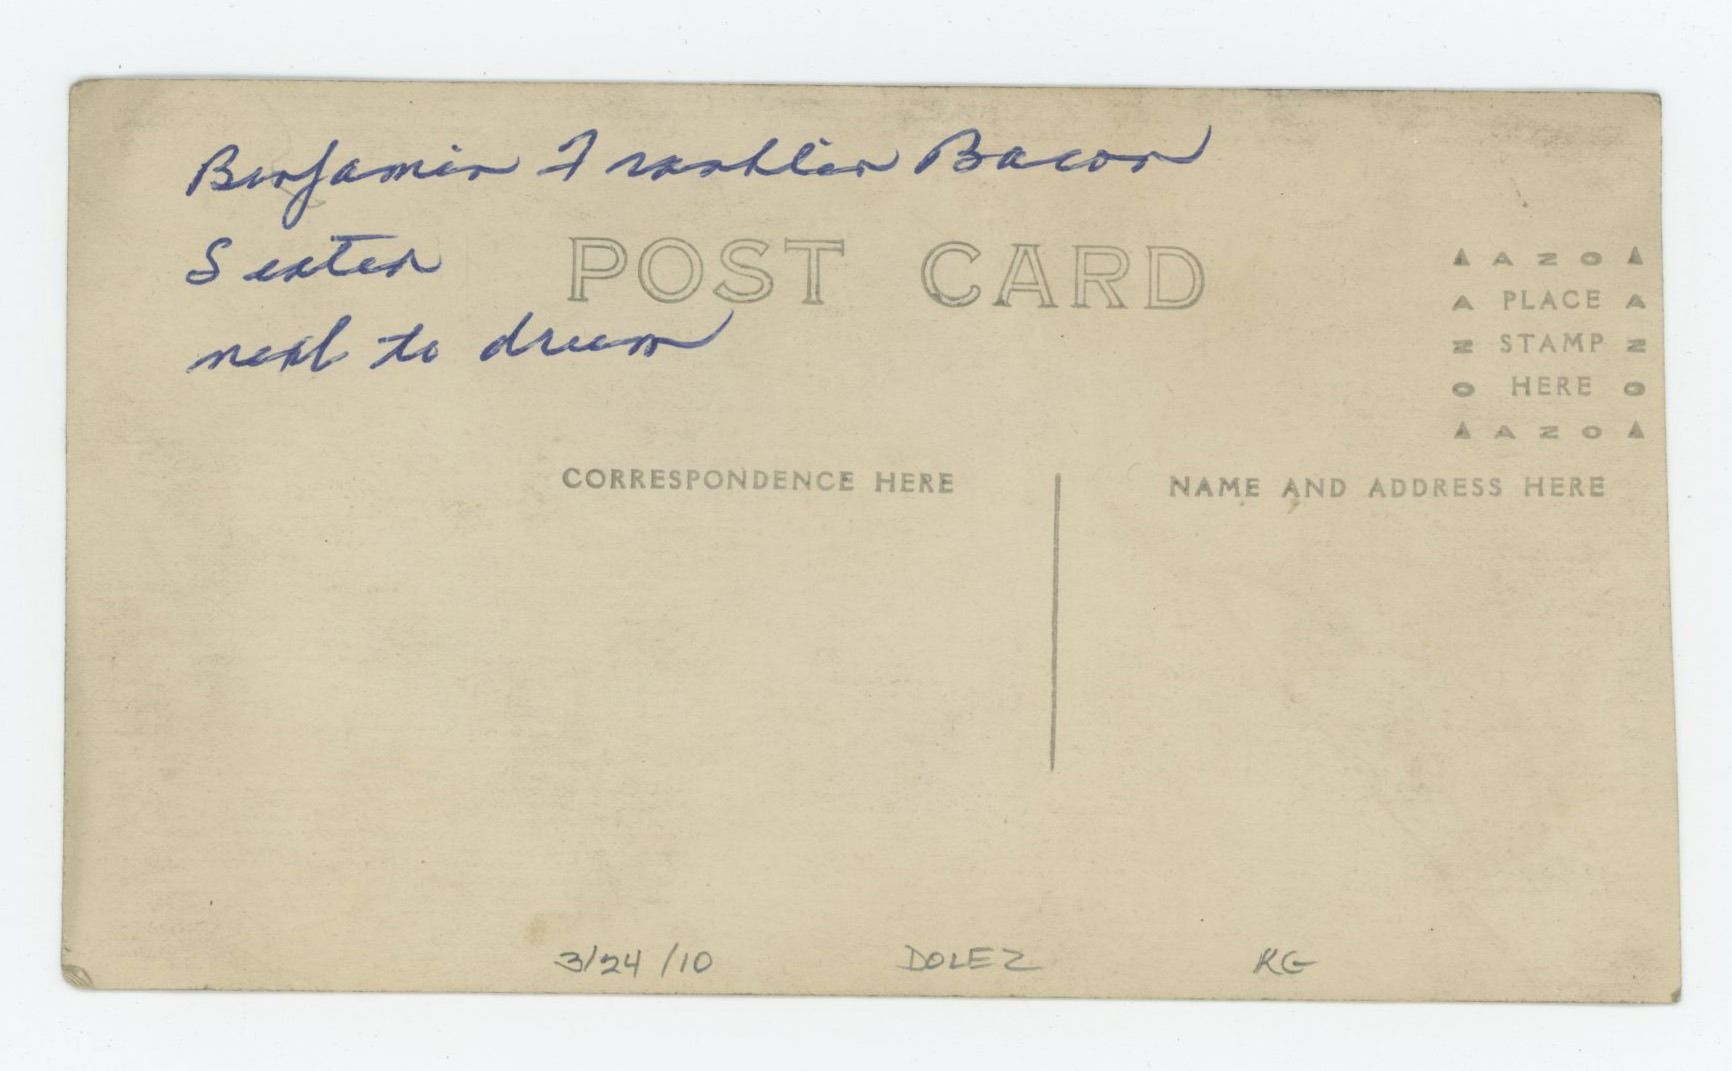 Benjamin Franklin Bacon
Seated
next to drum
POST CARD
AZO
PLACE
STAMP
HERE
AZO
CORRESPONDENCE HERE
NAME AND ADDRESS HERE
3/24/10 DOLEZ RG